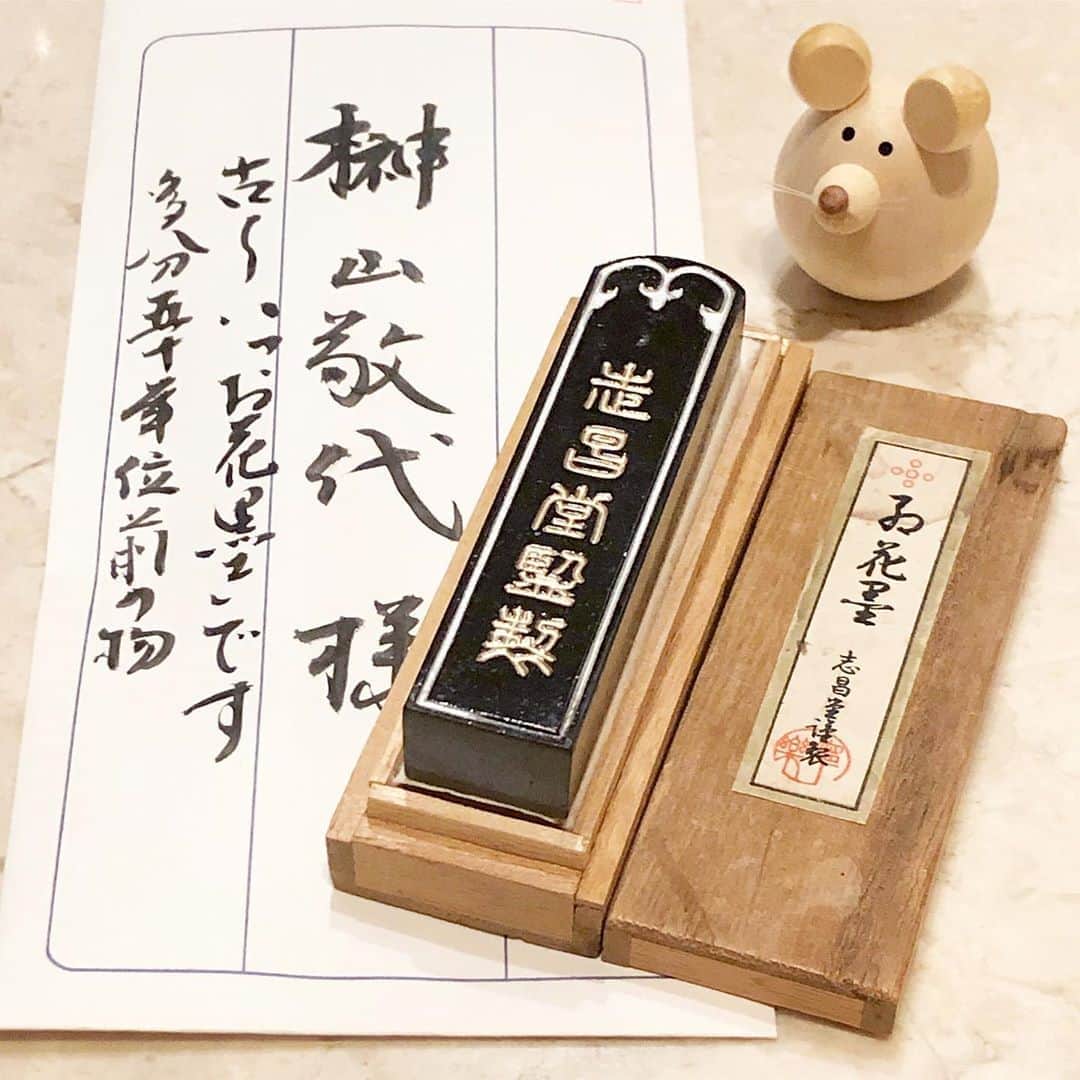 榊山敬代様
古〜い「お花墨」です
多分五十年位前の物
志昌堂製
お花墨
志昌堂謹製